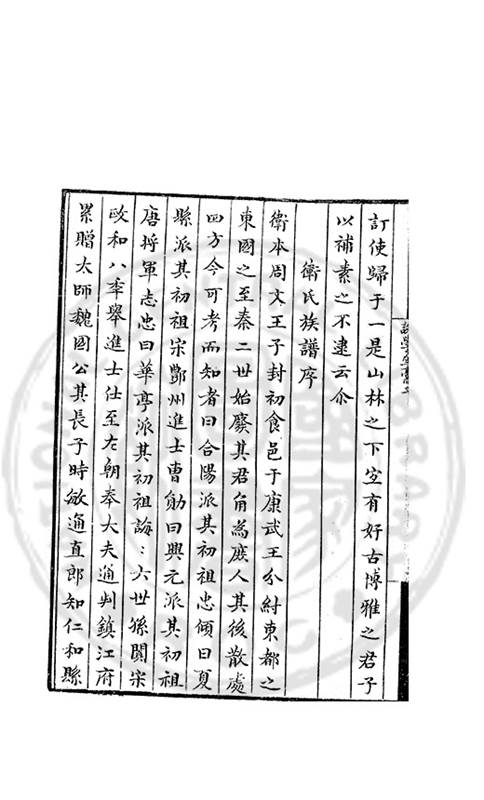 訂使歸于一是山林之下寔有好古博雅之君子
以補素之不逮云尒
衛氏族譜序
衛本周文王子封初食邑于康武王分紂東都之
東國之至秦二世始廢其君角為庶人其後散處
四方今可考而知者曰合陽派其初祖忠傾曰夏
縣派其初祖宋鄭州進士曹勛曰興元派其初祖
唐将軍志忠曰華亭派其初祖誨：六世孫闐宋
政和八年舉進士仕至左朝奉大夫通判鎮江府
累贈太師魏國公其長子時敏通直郎知仁和縣